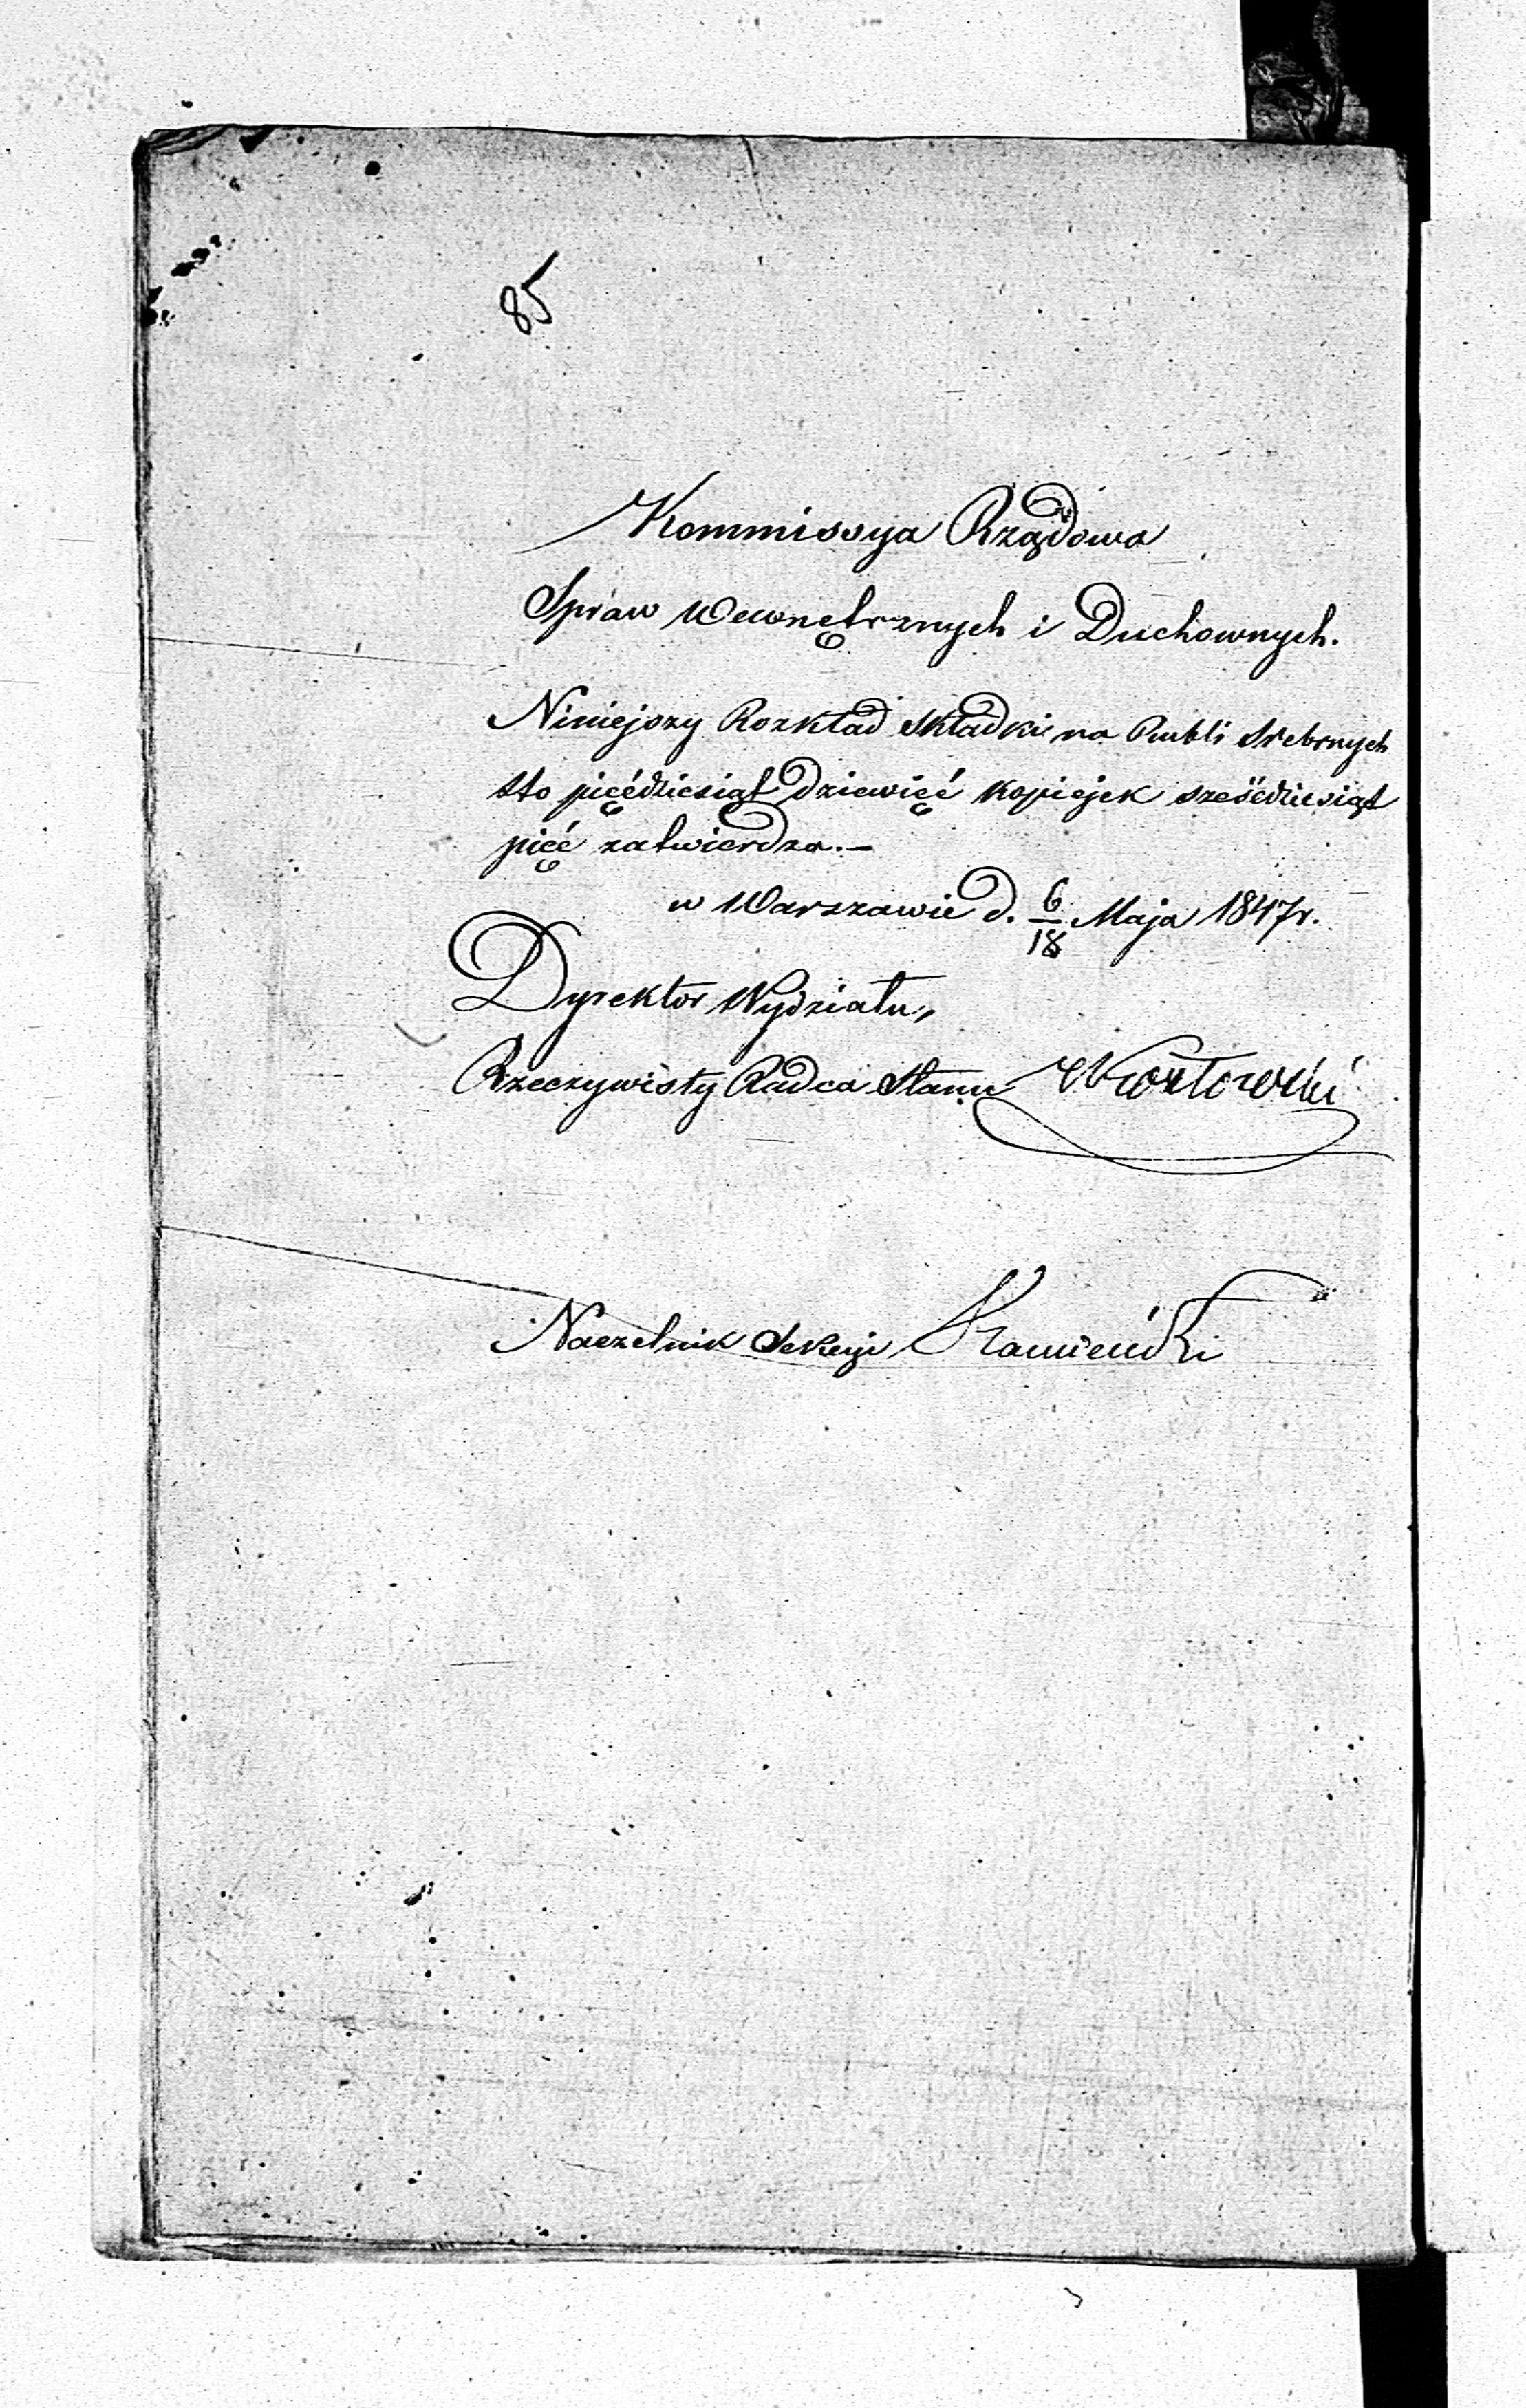 85
Kommissya Rządowa
Spraw Wewnętrznych i Duchownych.
Niniejszy Rozkład składki na Rubli Srebrnych
sto pięćdziesiąt dziewięć kopiejek sześćdziesiąt
pięć zatwierdza.—
w Warszawie d. 6/18 Maja 1847r.
Dyrektor Wydziału,
Rzeczywisty Radca Stanu
Naczelnik Sekcyi Kamieński